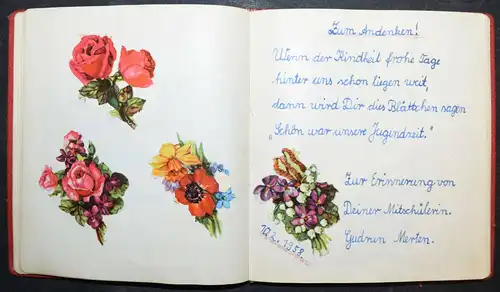 Zum Andenken!
Wenn der Kindheit frohe Tage
hinter uns schon liegen weit,
dann wird Dir dies Blättchen sagen
„Schön war unsere Jugendzeit."
Zur Erinnerung von
Deiner Mitschülerin.
Gudrun Merten.
1958